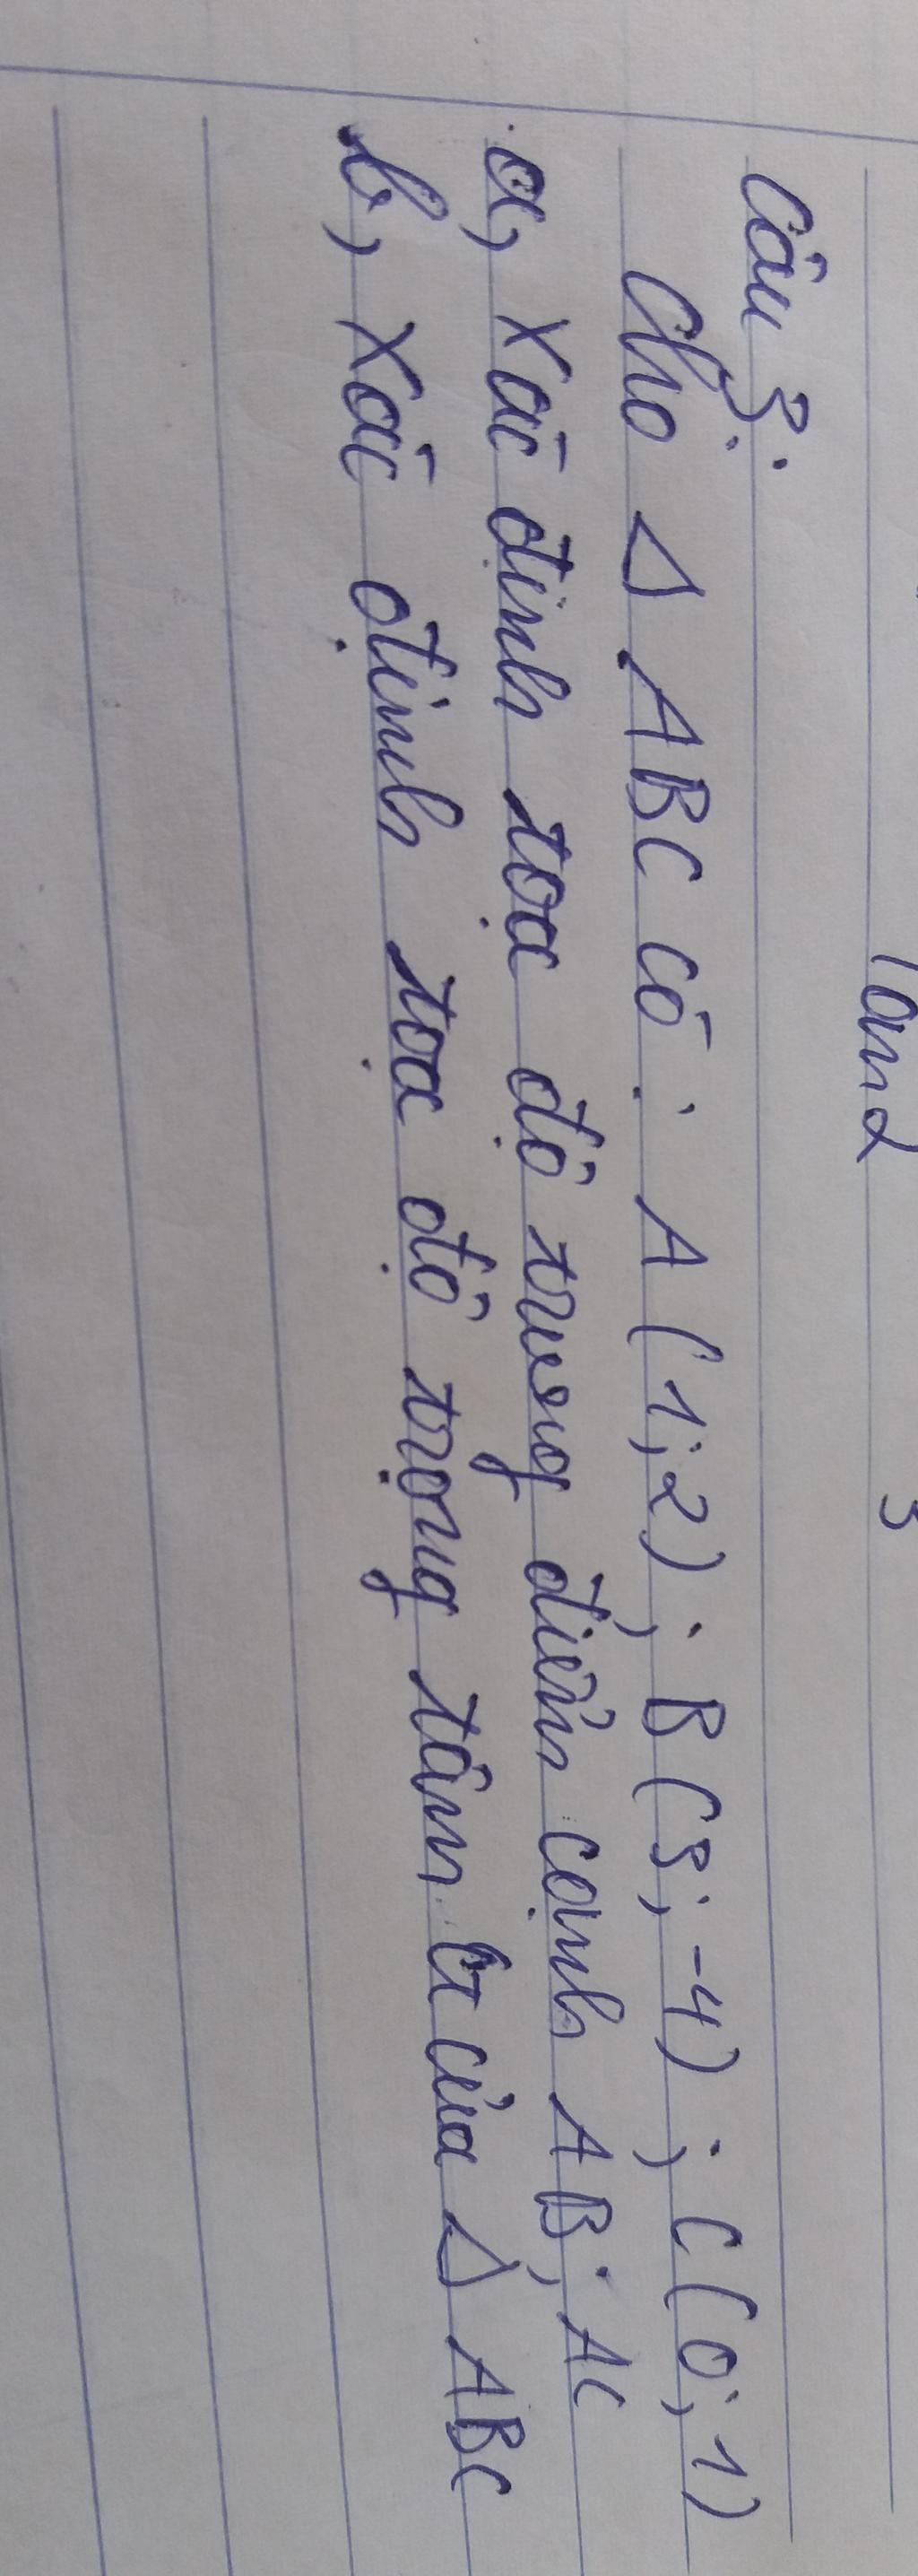 Câu 3:
Cho Δ ABC có: A(1;2); B(3;-4); C(0;1)
a, Xác định tọa độ trung điểm cạnh AB; AC
b, Xác định tọa độ trọng tâm G của Δ ABC